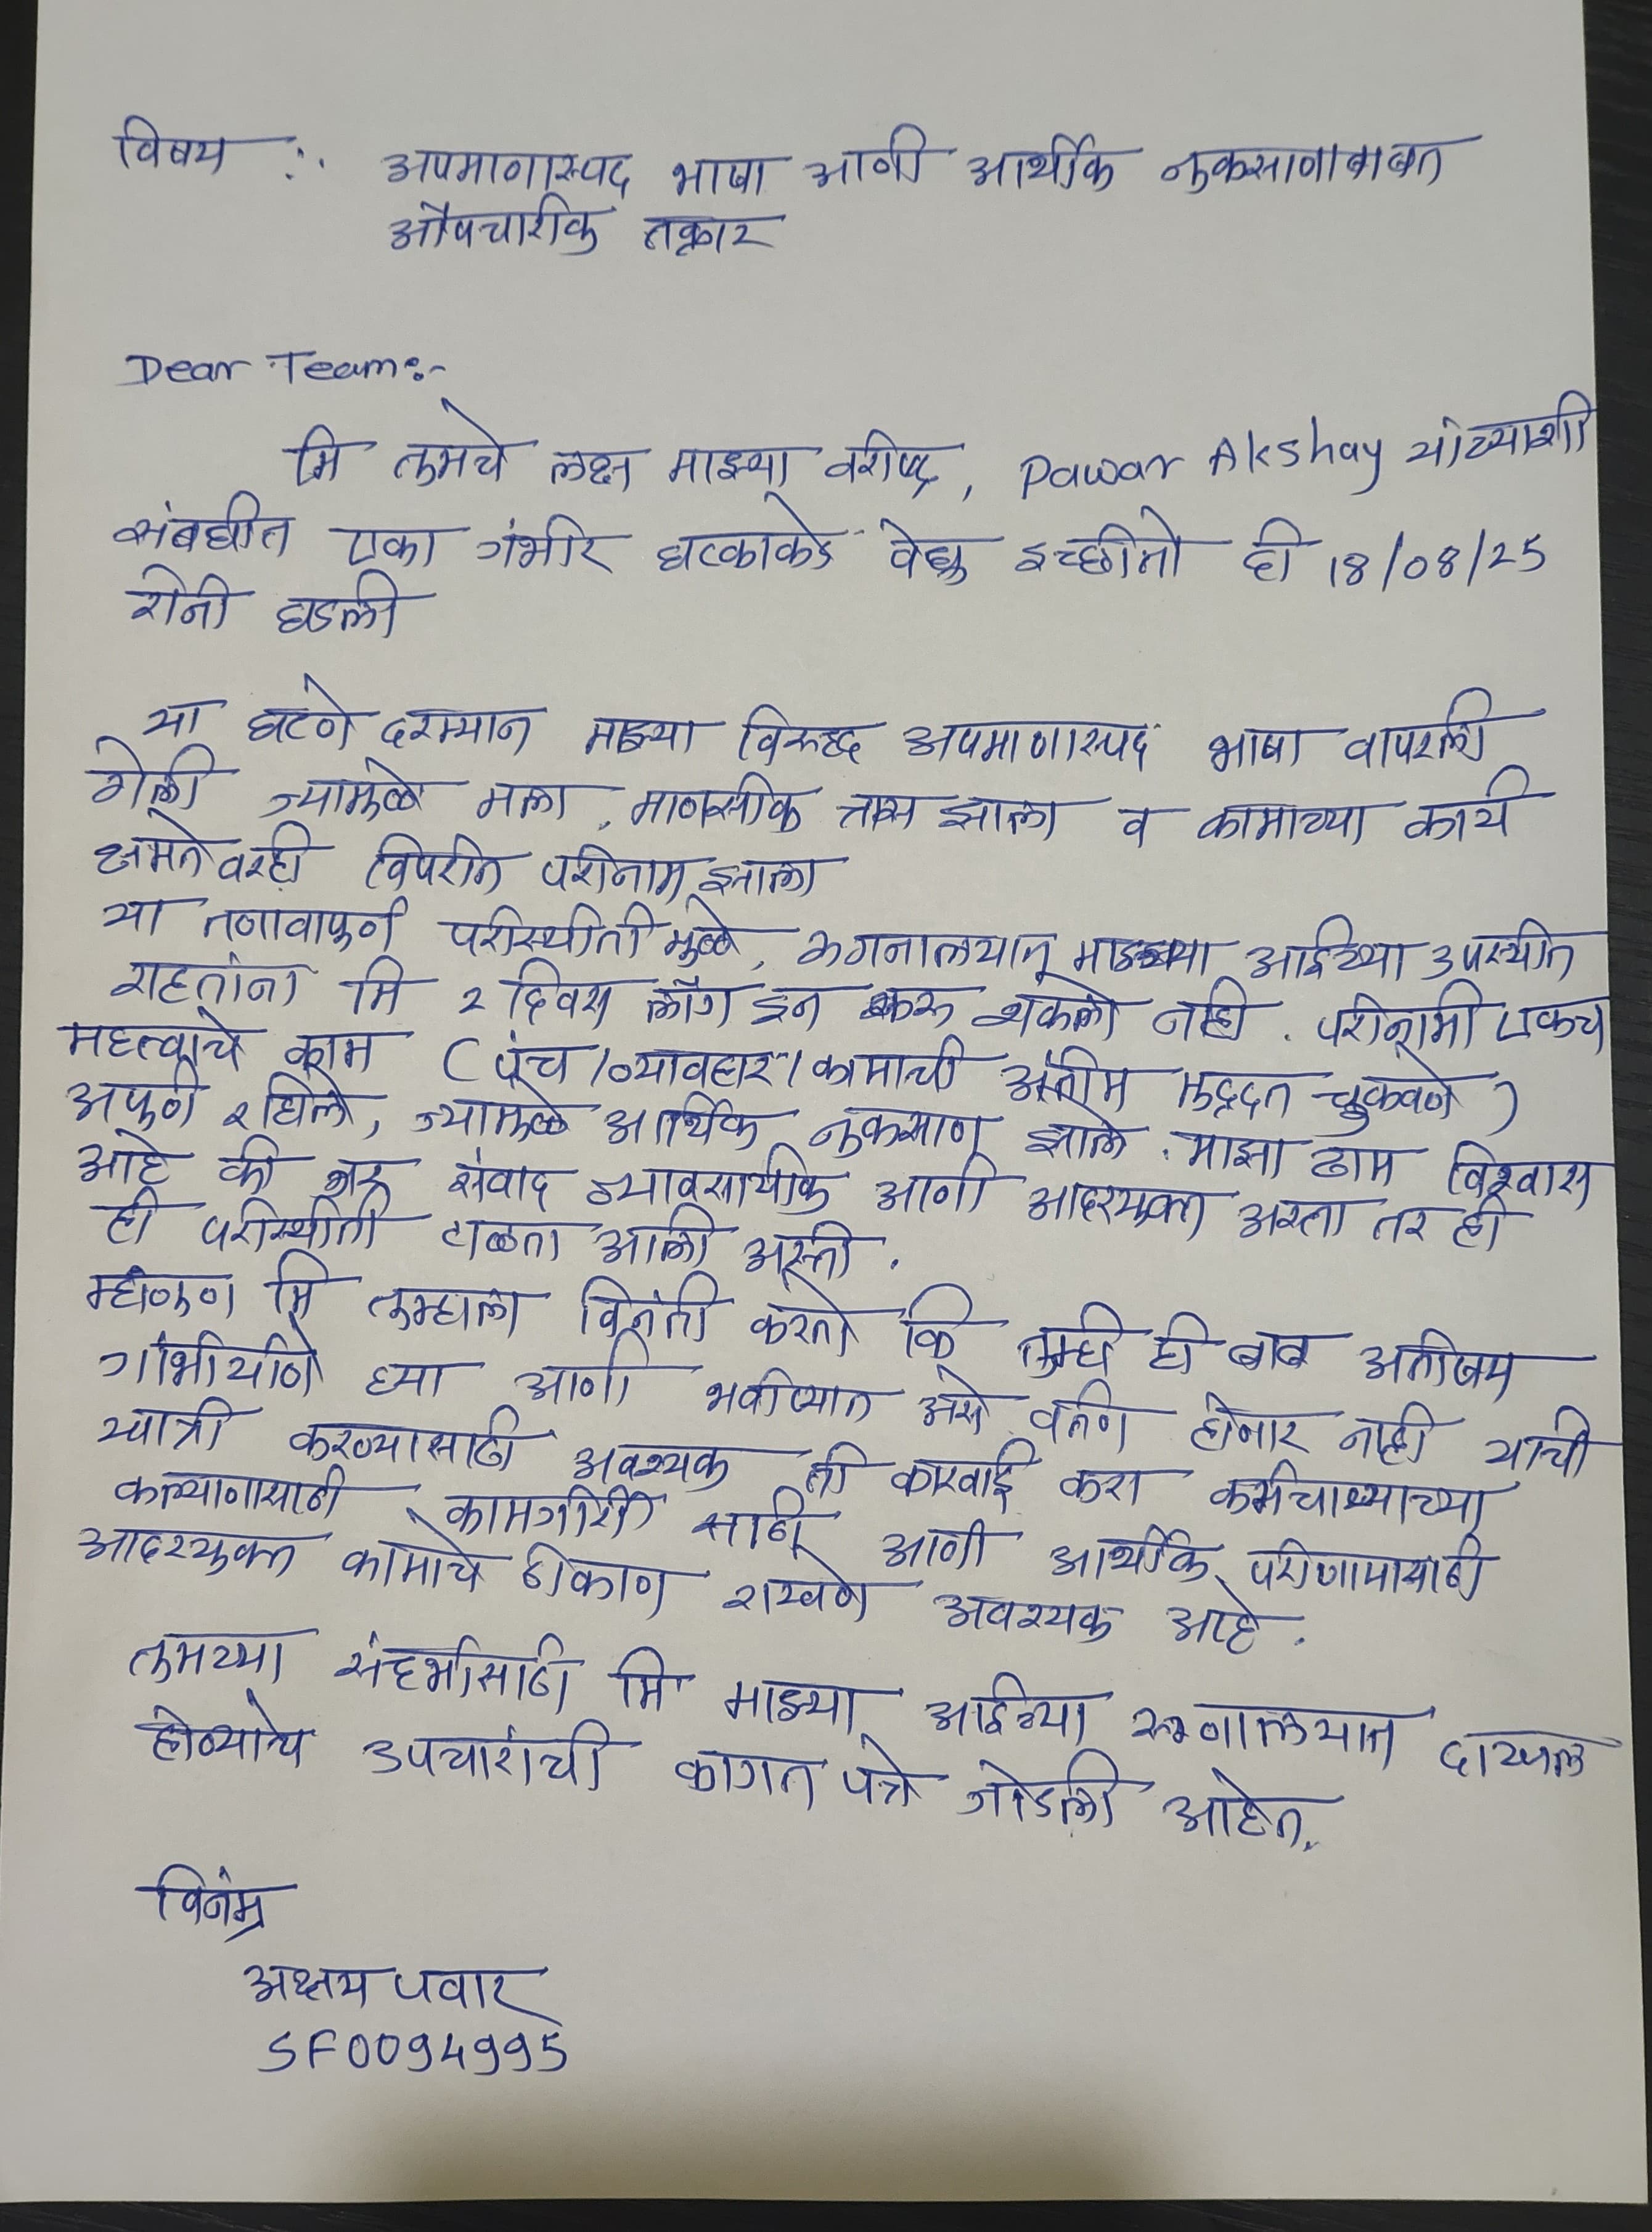 विषय :. अपमाणास्पद भाषा आणी आर्थीक नुकसाणाबाबत
औपचारीक तक्रार
Dear Team:-
मि तुमचे लक्ष माझ्या वरीष्ठ, Pawar Akshay यांच्याशी
संबधीत एका गंभीर घटकाकडे वेधु इच्छीतो ही 18/08/25
रोजी घडली
या घटणे दरम्यान माझ्या विरुद्ध अपमाणास्पद भाषा वापरली
गेली ज्यामुळे मला माणसीक त्रास झाला व कामाच्या कार्य
क्षमतेवरही विपरीत परीनाम झाला
या तणावापुर्ण परीस्थीती मुळे, रुगनालयात माझ्या आईच्या उपस्थीत
राहतांना मि २ दिवस लॉग इन करू शकलो नाही. परीणामी एकच
महत्वाचे काम (पंच/व्यावहार/कामाची अंतीम मुद्दत चुकवणे)
अपुर्ण राहिले, ज्यामुळे आर्थिक नुकसाण झाले. माझा ठाम विश्वास
आहे की जर संवाद व्यावसायीक आणी आदरयुक्त असता तर ही
ही परीस्थीती टाळता आली असती.
म्हणुण मि तुम्हाला विनंती करतो कि तुम्ही ही बाब अतीशय
गांभीर्याणे घ्या आणी भवीष्यात असे वर्तण होनार नाही याची
खात्री करण्यासाठी अवश्यक ती कारवाई करा कर्मचाऱ्याच्या
कल्याणासाठी, कामगीरी साठी आणी आर्थीक परीणामासाठी
आदरयुक्त कामाचे ठीकाण राखणे अवश्यक आहे.
तुमच्या संदर्भासाठी मि माझ्या आईच्या रुग्णालयात दाखल
होण्याचे उपचारांची कागत पत्रे जोडली आहेत.
विनंम्र
अक्षय पवार
SF0094995